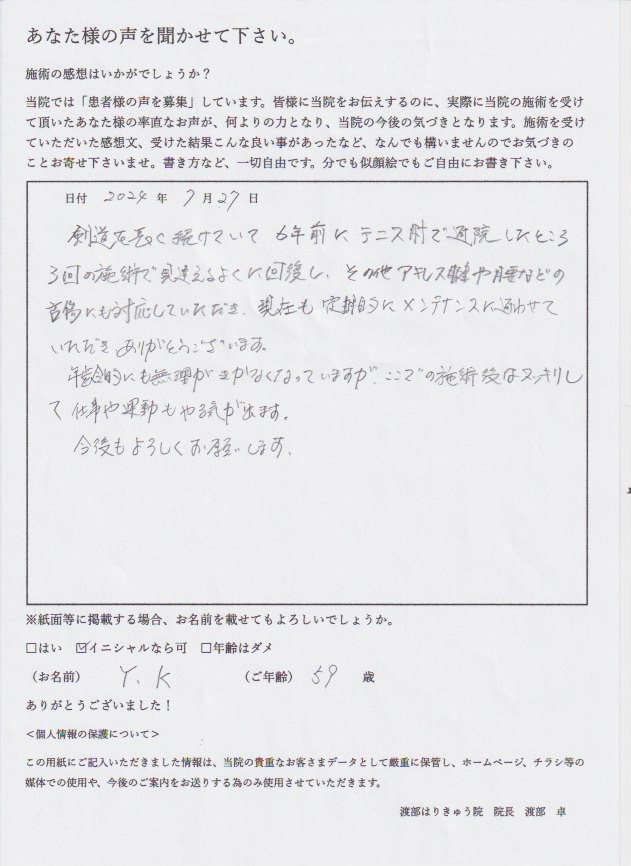 あなた様の声を聞かせて下さい。
施術の感想はいかがでしょうか？
当院では「患者様の声を募集」しています。皆様に当院をお伝えするのに、実際に当院の施術を受け
て頂いたあなた様の率直なお声が、何よりの力となり、当院の今後の気づきとなります。施術を受け
ていただいた感想文、受けた結果こんな良い事があったなど、なんでも構いませんのでお気づきの
ことお寄せ下さいませ。書き方など、一切自由です。分でも似顔絵でもご自由にお書き下さい。
日付 2024 年 7 月 27 日
剣道を長く続けていて 6年前に テニス肘で通院したところ
3回の施術で見違えるよくに回復し、その他アキレス腱や腰などの
古傷にも対応していただき、現在も定期的にメンテナンスに通わせて
いただき ありがとうございます。
年齢的にも無理がきかなくなっていますが、ここでの施術後はスッキリし
て 仕事や運動もやる気が出ます。
今後もよろしくお願いします。
※紙面等に掲載する場合、お名前を載せてもよろしいでしょうか。
□はい ☑イニシャルなら可 □年齢はダメ
（お名前） Y. K （ご年齢） 59 歳
ありがとうございました！
<個人情報の保護について>
この用紙にご記入いただきました情報は、当院の貴重なお客さまデータとして厳重に保管し、ホームページ、チラシ等の
媒体での使用や、今後のご案内をお送りする為のみ使用させていただきます。
渡部はりきゅう院 院長 渡部 卓